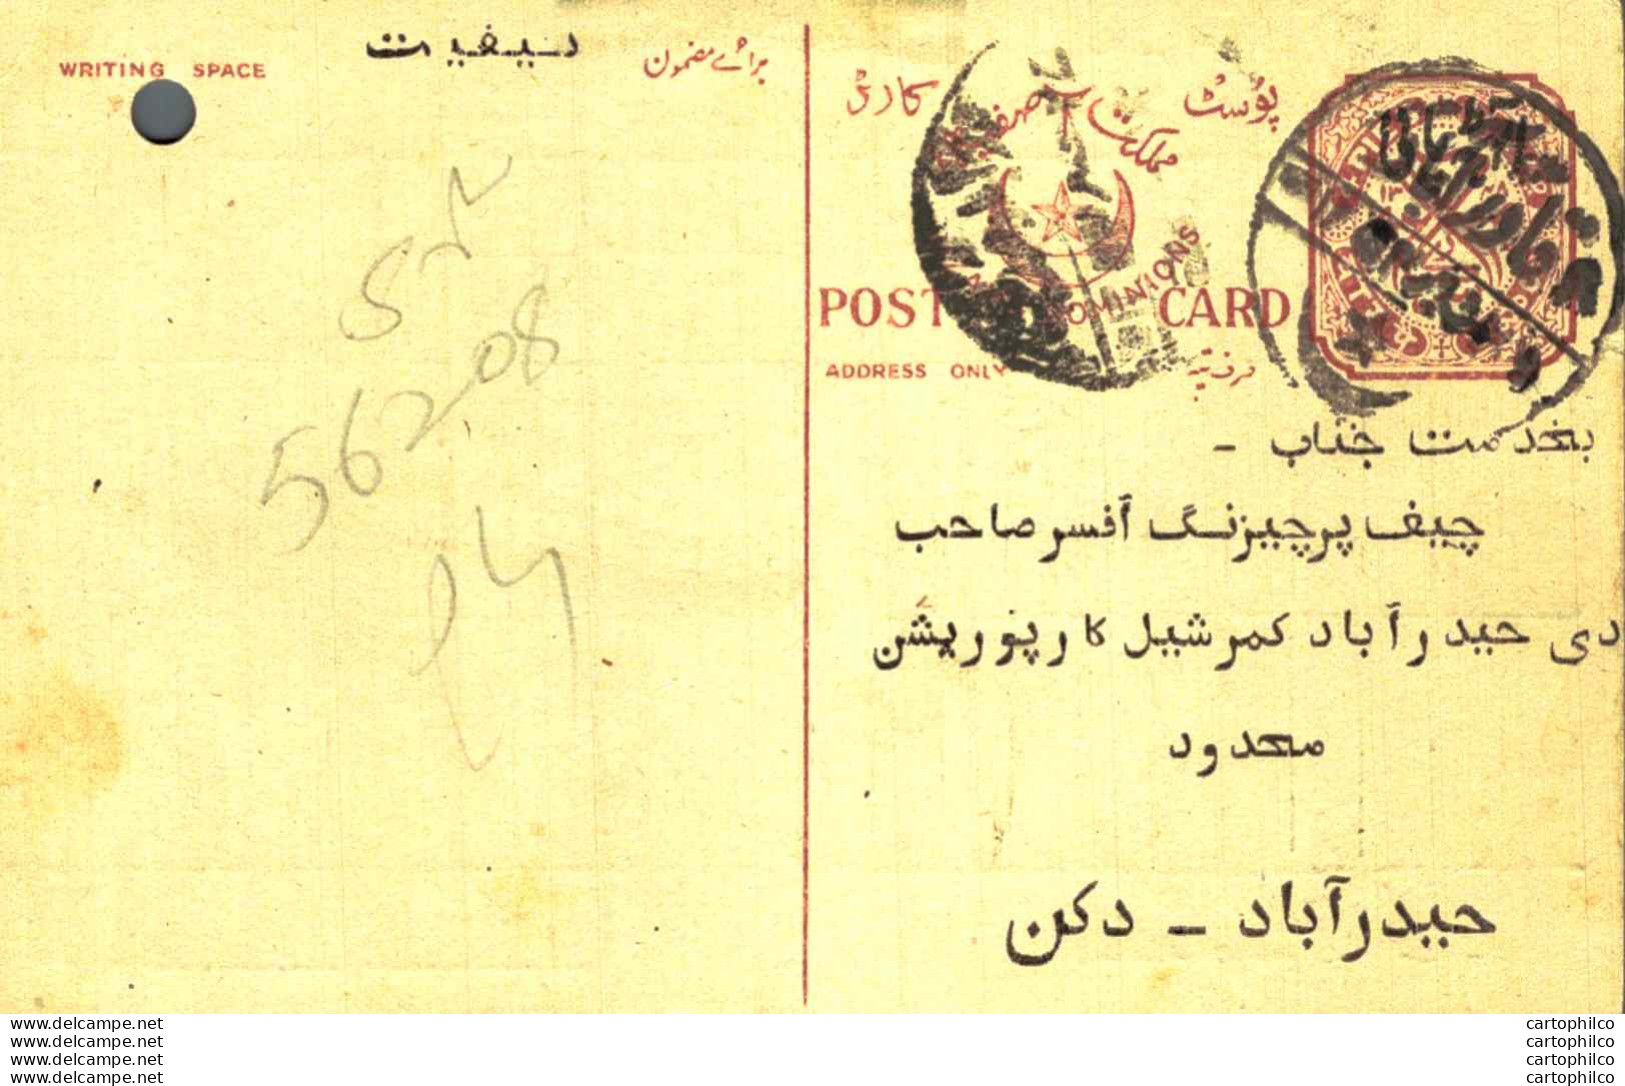 WRITING SPACE
برائے مضمون
پوسٹ کارڈ
مملکت آصفیہ
DOMINIONS
POST CARD
ADDRESS ONLY
صرف پتہ
بخدمت جناب -
چیف پرچیزنگ آفسر صاحب
دی حیدرآباد کمرشیل کارپوریشن
محدود
حیدرآباد - دکن
56208
www.delcampe.net
www.delcampe.net
www.delcampe.net
www.delcampe.net
cartophilco
cartophilco
cartophilco
cartophilco